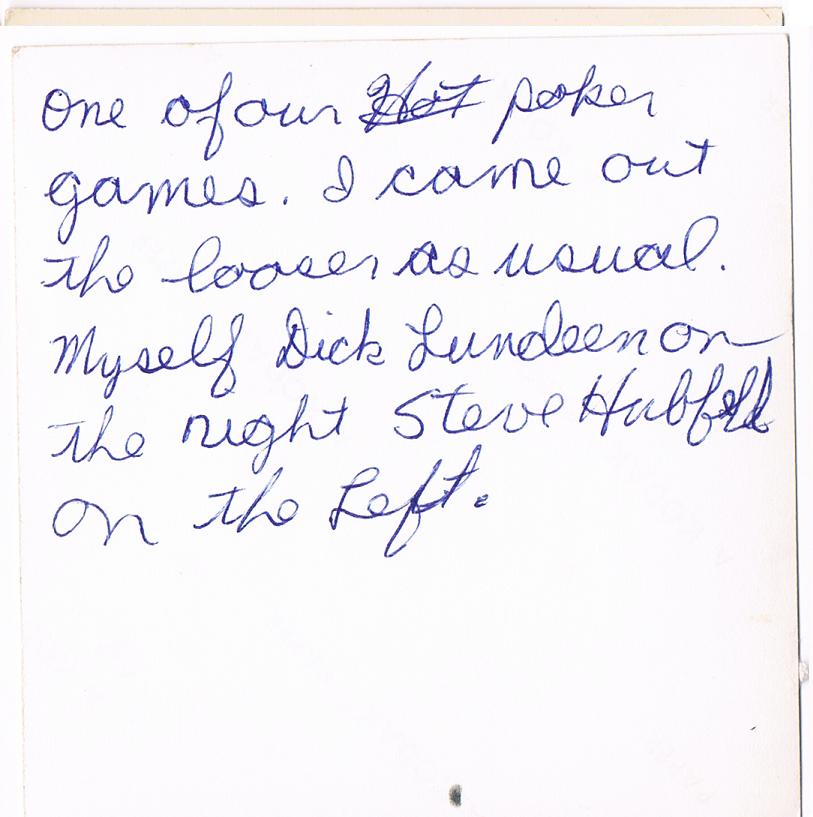 One of our Hot poker
games. I came out
the looser as usual.
Myself Dick Lundeen on
the right Steve
on the Left.